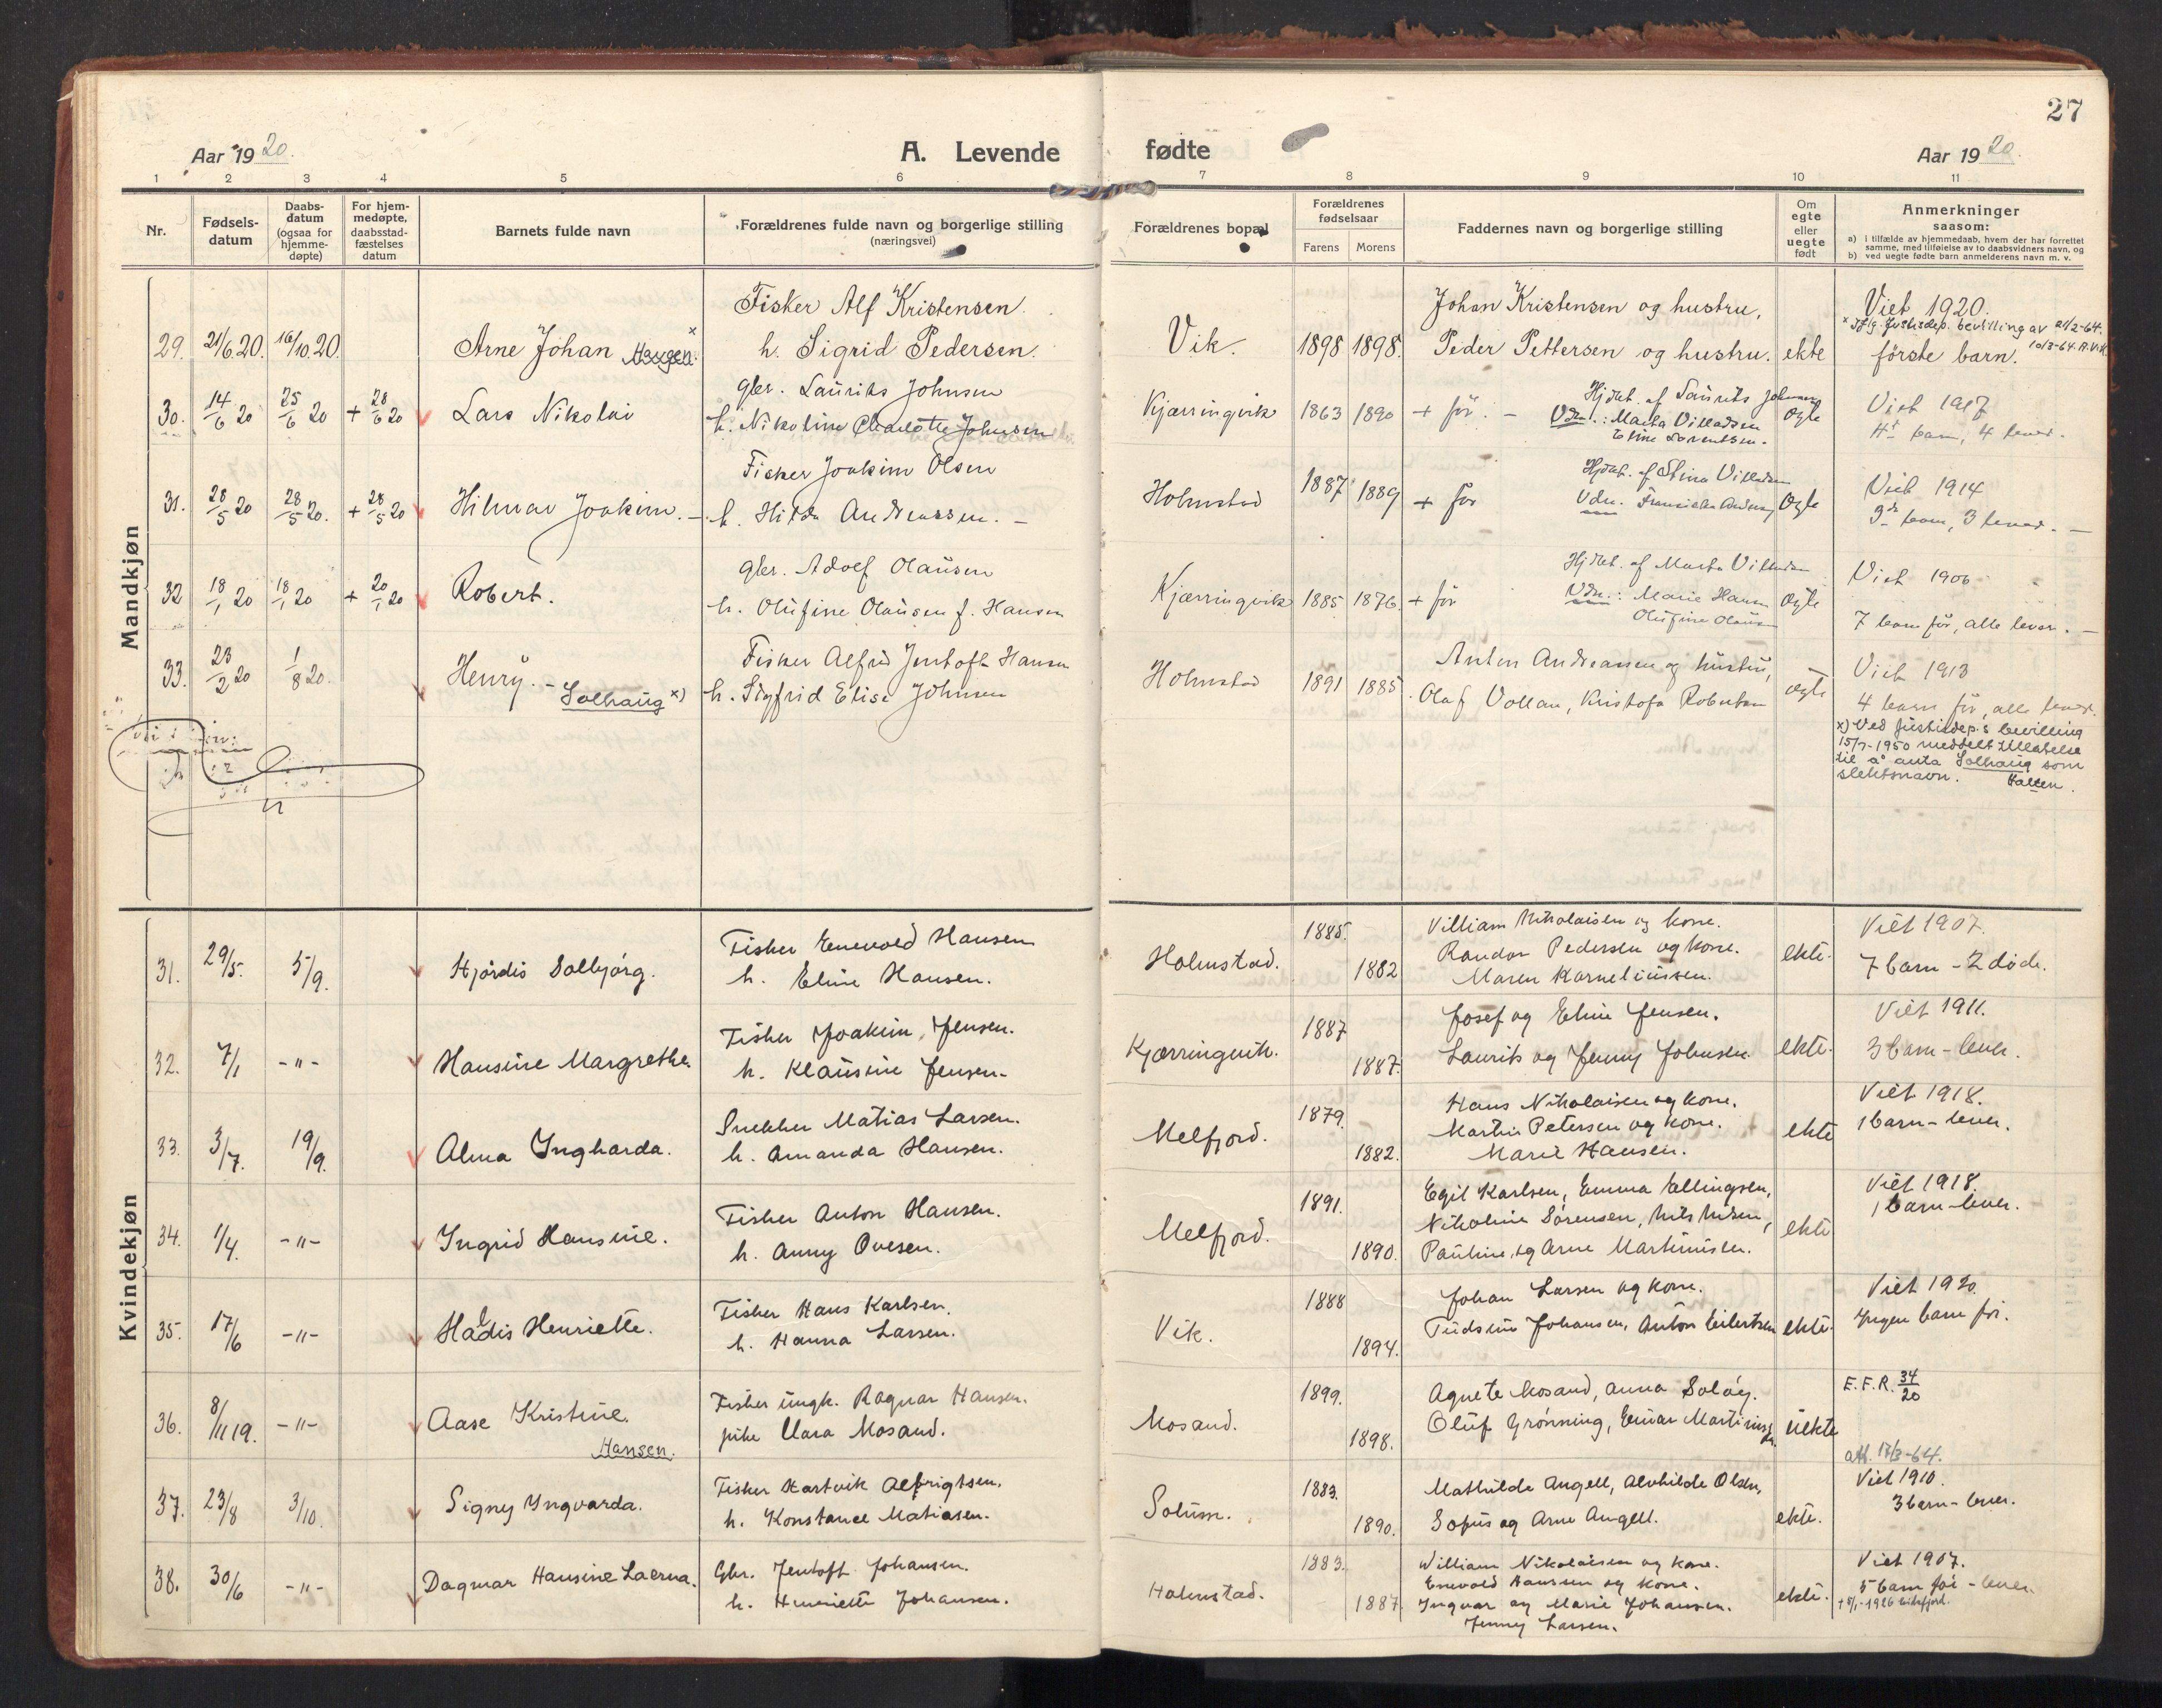 27
Aar 1920.
A. Levende fødte
Aar 1920.
1 2 3 4 5 6 7 8 9 10 11
Nr.
Fødsels-
datum
Daabs-
datum
(ogsaa for
hjemme-
døpte)
For hjem-
medøpte,
daabsstad-
fæstelses
datum
Barnets fulde navn
Forældrenes fulde navn og borgerlige stilling
(næringsvei)
Forældrenes bopæl
Forældrenes
fødselsaar
Farens Morens
Faddernes navn og borgerlige stilling
Om
egte
eller
uegte
født
Anmerkninger
saasom:
a) i tilfælde av hjemmedaab, hvem der har forrettet
samme, med tilføielse av to daabsvidners navn, og
b) ved uegte fødte barn anmelderens navn m. v.
Mandkjøn
29. 21/6 20. 16/10 20. Arne Johan Haugen x
Fisker Alf Kristensen
h. Sigrid Pedersen.
Vik. 1898 1898.
Johan Kristensen og hustru,
Peder Pettersen og hustru. ekte
Viet 1920.
x Iflg. Justisdep. bevilling av 21/2-64.
10/3-64. A. Vik
første barn.
30. 14/6 20 25/6 20 + 28/6 20 Lars Nikolai
gbr. Laurits Johnsen
h. Nikoline Charlotte Johnsen
Kjærringvik 1863 1890 + før. -
Hjdbt. af Laurits Johnsen
Vdn.: Marta Villadsen
Eline Lorentsen.
ogte
Viet 1917
4 barn, 4 lever.
31. 28/5 20 28/5 20. + 28/5 20 Hilmar Joakim. -
Fisker Joakim Olsen
h. Hilda Andreassen. -
Holmstad 1887 1889 + før
Hjdbt. af Stina Villadsen
Vdn.
ogte
Viet 1914
3 barn, 3 lever. -
32 18/1 20 18/1 20 + 20/1 20 Robert.
gbr. Adolf Olausen
h. Olufine Olausen f. Hansen
Kjærringvik 1885 1876. + før
Hjdbt. af Marta Villadsen
Vdn.: Marie Hansen
Olufine Olausen
ogte
Viet 1906
7 barn før, alle lever. -
33. 23/2 20 1/8 20. Henry. - Solhaug x)
Fisker Alfred Jentoft Hansen
h. Sigfrid Elise Johnsen
Holmstad 1891 1885
Anton Andreassen og hustru,
Olaf Vollan, Kristofa Robertsen
ogte
Viet 1913
4 barn før, alle lever.
x) Ved Justisdep.s bevilling
15/7-1950 meddelt tillatelse
til å anta Solhaug som
slektsnavn. Halten.
Kvindekjøn
31. 29/5. 5/9. Hjördis Solbjörg.
Fisker Enevold Hansen
h. Eline Hansen.
Holmstad. 1885. 1882
Villiam Nikolaisen og kone.
Randor Pedersen og kone.
Maren Karneliussen.
ekte.
Viet 1907.
7 barn - 2 döde.
32. 7/1 -"- Hansine Margrethe.
Fisker Joakim Jensen.
h. Klausine Jensen.
Kjærringvik. 1887 1887.
Josef og Eline Jensen.
Laurits og Jenny Johnsen
ekte.
Viet 1911.
3 barn - lever.
33. 3/7. 19/9. Alma Ingharda.
Snekker Matias Larsen.
h. Amanda Hansen.
Melfjord. 1879. 1882.
Hans Nikolaisen og kone.
Martin Petersen og kone.
Marie Hansen.
ekte
Viet 1918.
1 barn - lever.
34. 1/4. -"- Ingrid Hansine.
Fisker Anton Hansen.
h. Anny Ovesen.
Melfjord. 1891. 1890.
Egil Karlsen, Emma Ellingsen,
Nikoline Sørensen, Nils Nilsen,
Pauline og Arne Martinussen.
ekte
Viet 1918.
1 barn - lever.
35. 17/6 -"- Hadis Henriette.
Fisker Hans Karlsen.
h. Hanna Larsen.
Vik. 1888 1894.
Johan Larsen og kone.
Johansen, Anton Eilertsen
ekte.
Viet 1920.
Ingen barn før.
36. 8/11 19. -"- Aase Kristine.
Hansen.
Fisker ungk. Ragnar Hansen.
pike Clara Mosand.
Mosand. 1899. 1898.
Agnete Mosand, Anna Soløy.
Oluf Grönning, Einar Martinussen.
uekte
E.F.R. 34/20
att. 17/3-64.
37. 23/8 3/10. Signy Yngvarda.
Fisker Hartvik Albrigtsen.
h. Konstance Matiasen.
Solum. 1883. 1890.
Mathilde Angell, Alvhilde Olsen,
Sofus og Arne Angell.
ekte.
Viet 1910.
3 barn - lever.
38. 30/6 -"- Dagmar Hansine Laerna.
Gbr. Jentoft Johansen.
h. Henriette Johansen.
Holmstad. 1883. 1887.
William Nikolaisen og kone.
Enevold Hansen og kone.
Ingvar og Marie Johansen.
Jenny Larsen.
ekte.
Viet 1907.
5 barn før - lever